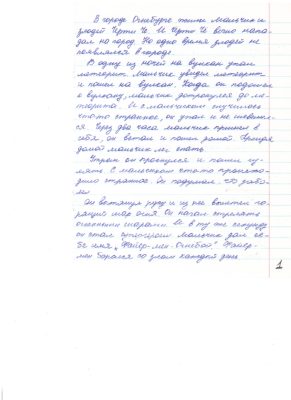 В городе Огнебурге жили мальчик и
злодей Черти Че. И Черто Че вечно напа-
дал на город. Но одно время злодей не
появлялся в городе.
В одну из ночей на вулкан упал
метеорит. Мальчик увидел метеорит
и пошел на вулкан. Когда он подошел
к вулкану, мальчик дотронулся до ме-
теорита. И с мальчиком случилось
что-то странное, он упал и не шевелил-
ся. Через два часа мальчик пришел в
себя, он встал и пошел домой. Придя
домой мальчик лег спать.
Утром он проснулся и пошел гу-
лять. С мальчиком что-то происхо-
дило странное. Он подумал, что забо-
лел.
Он вытянул руку и из нее вылетел го-
рящий шар огня. Он начал стрелять
огненными шарами. И в ту же секунду
он стал супергерой. Мальчик дал се-
бе имя „Файер-мен-Огнебой". Файер-
мен боролся со злом каждый день.
1